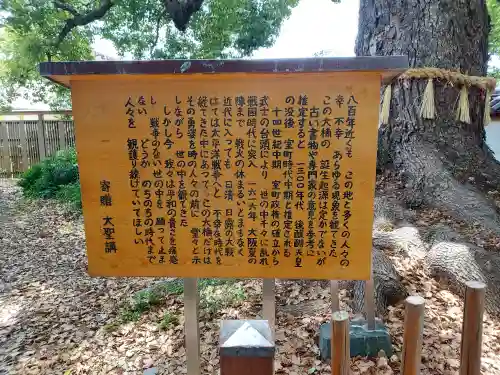 八百年近くも この地と多くの人々の
幸、不幸 あらゆる現象を観てきた
この大楠の 誕生起源は定かでないが
古い書物や専門家の意見を参考に
推定すると 一三〇〇年代 後醍醐天皇
の没後、室町時代中期と推定される
十四世紀中期、室町政権の確立から
武士の台頭により 世の中千々に乱れ
戦国時代に突入し 六一六年、大阪夏の
陣まで、戦火の休まるいとまなく
近代に入っても、日清、日露の大戦
はては太平洋戦争へと 不幸な時代を
経てきた中にあって、この大楠だけは
その勇姿を時の人々の前に 堂々と示
しながら 世の中を観てきた
しかし今、我々は平和の貴さを痛感
し 戦争のない世の中を 願って止ま
ない どうか のちのちの時代まで
人々を 観護り続けていてほしい
寄贈 大聖講